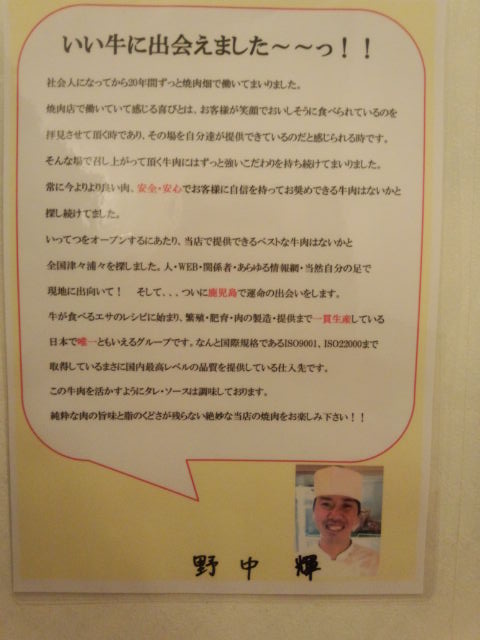 いい牛に出会えました～～っ！！
社会人になってから20年間ずっと焼肉畑で働いてまいりました。
焼肉店で働いていて感じる喜びとは、お客様が笑顔でおいしそうに食べられているのを
拝見させて頂く時であり、その場を自分達が提供できているのだと感じられる時です。
そんな場で召し上がって頂く牛肉にはずっと強いこだわりを持ち続けてまいりました。
常に今よりより良い肉、安全・安心でお客様に自信を持ってお奨めできる牛肉はないかと
探し続けてました。
いってつをオープンするにあたり、当店で提供できるベストな牛肉はないかと
全国津々浦々を探しました。人・WEB・関係者・あらゆる情報網・当然自分の足で
現地に出向いて！　そして、、、ついに鹿児島で運命の出会いをします。
牛が食べるエサのレシピに始まり、繁殖・肥育・肉の製造・提供まで一貫生産している
日本で唯一ともいえるグループです。なんと国際規格であるISO9001、ISO22000まで
取得しているまさに国内最高レベルの品質を提供している仕入先です。
この牛肉を活かすようにタレ・ソースは調味しております。
純粋な肉の旨味と脂のくどさが残らない絶妙な当店の焼肉をお楽しみ下さい！！
野中 輝